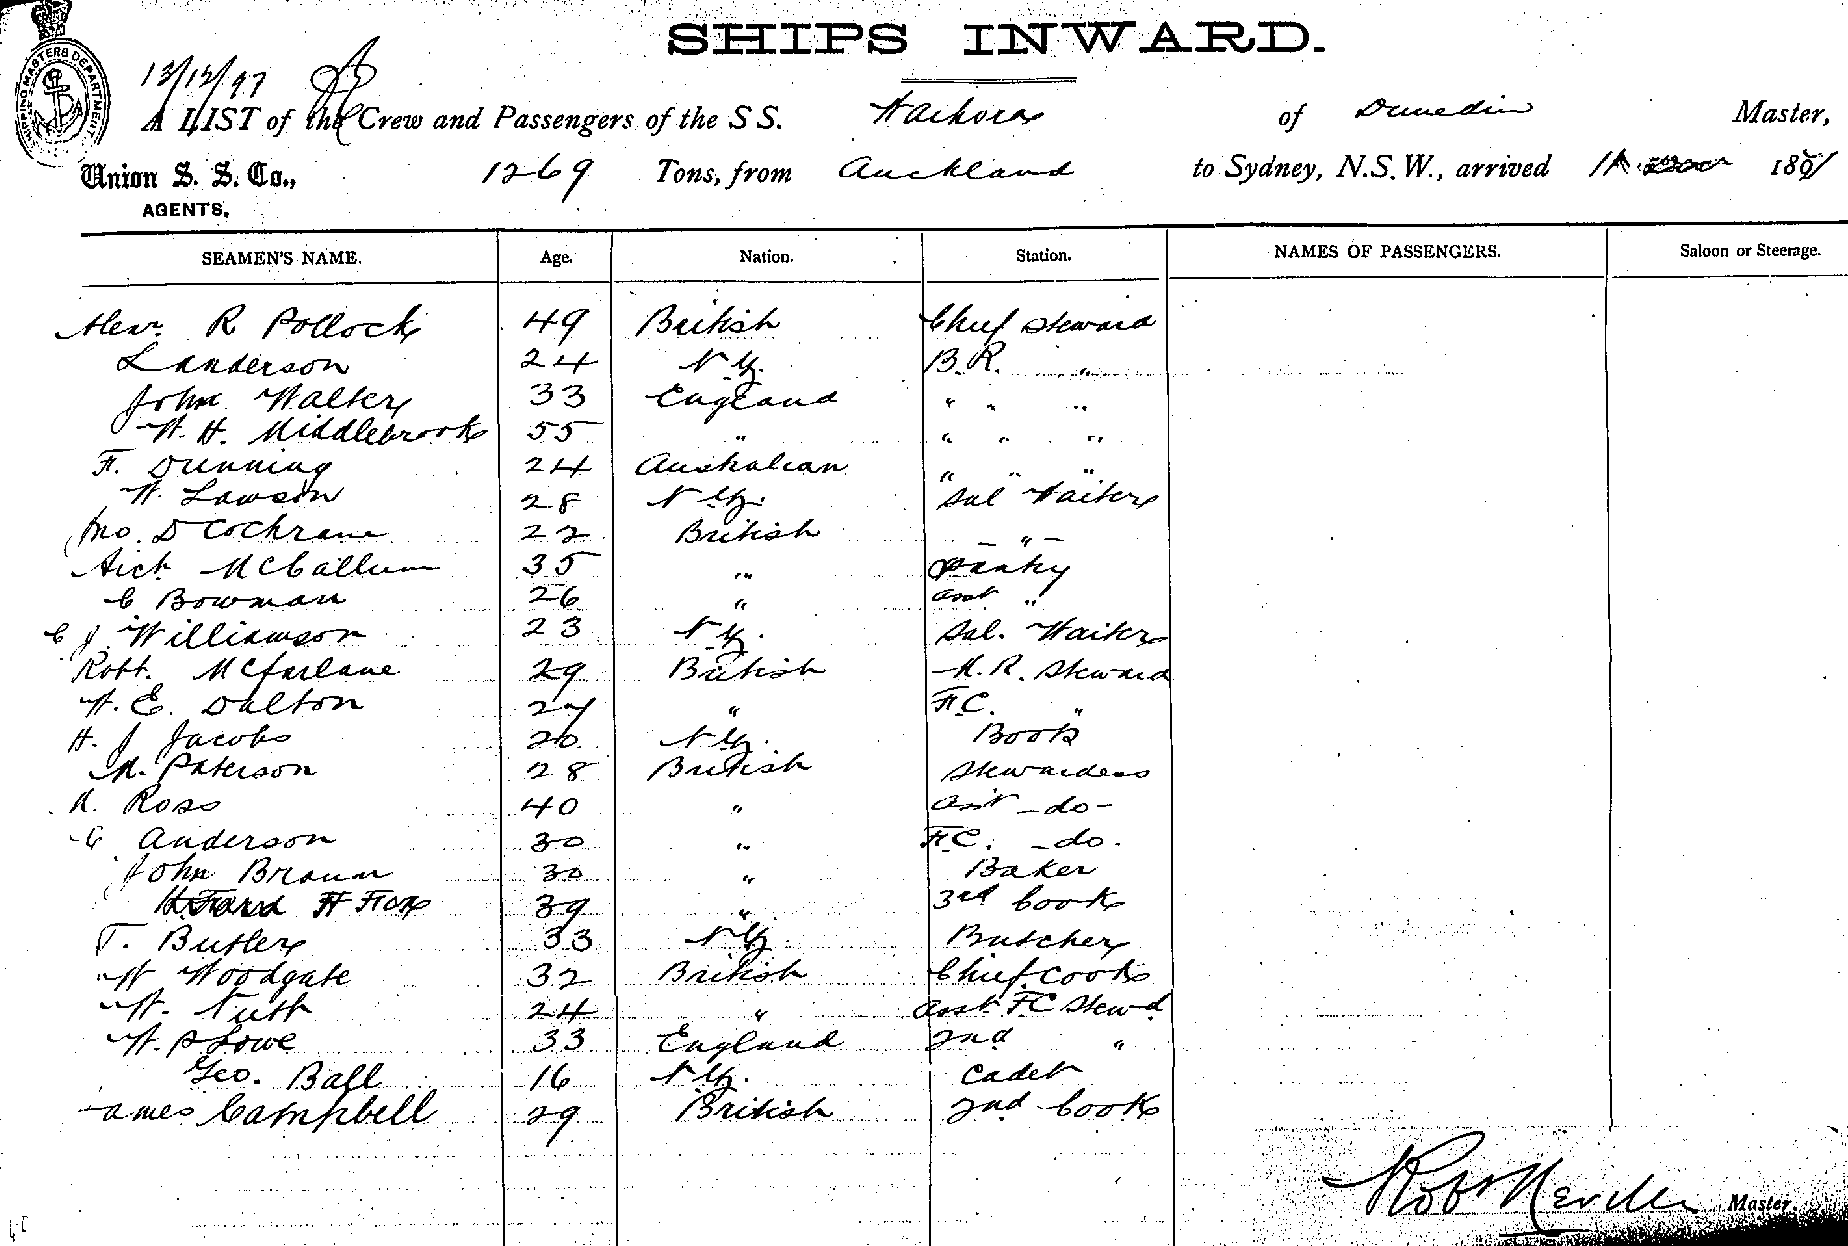 SHIPS INWARD.
SHIPPING MASTERS DEPARTMENT
13/12/97
A LIST of the Crew and Passengers of the SS. of Dunedin Master,
Union S. S. Co., 1269 Tons, from Auckland to Sydney, N.S.W., arrived 189
AGENTS.
SEAMEN'S NAME. Age. Nation. Station. NAMES OF PASSENGERS. Saloon or Steerage.
Alexr. R Pollock 49 British Chief Steward
L Anderson 24 N Z. B.R. "
John Walker 33 England " " "
W. H. Middlebrook 55 " " " "
F. Dunning 24 Australian " " "
W. Lawson 28 N Z. Sal Waiter
Jno. D Cochrane 22 British - " -
Arch McCallum 35 " Pantry
C Bowman 26 " asst "
C J. Williamson 23 N Z. Sal. Waiter
Robt. McFarlane 29 British M. R. Steward
W. E. Dalton 27 " F.C. "
H. J Jacobs 20 N Z. Book
M. Paterson 28 British Stewardess
M. Ross 40 " Asst -do-
C Anderson 30 " F.C. -do.
John Braun 30 " Baker
H Fox 39 " 3rd Cook
T. Butler 33 N Z. Butcher
W Woodgate 32 British Chief Cook
W. Nuth 24 " Asst FC Stewd
W. P Lowe 33 England 2nd "
Geo. Ball 16 N Z. Cadet
James Campbell 29 British 2nd Cook
Robt Neville Master.